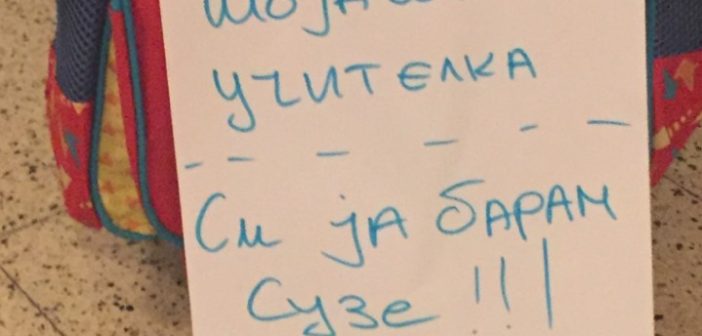 учителка
- - - - - -
Си ја барам
Сузе !!!